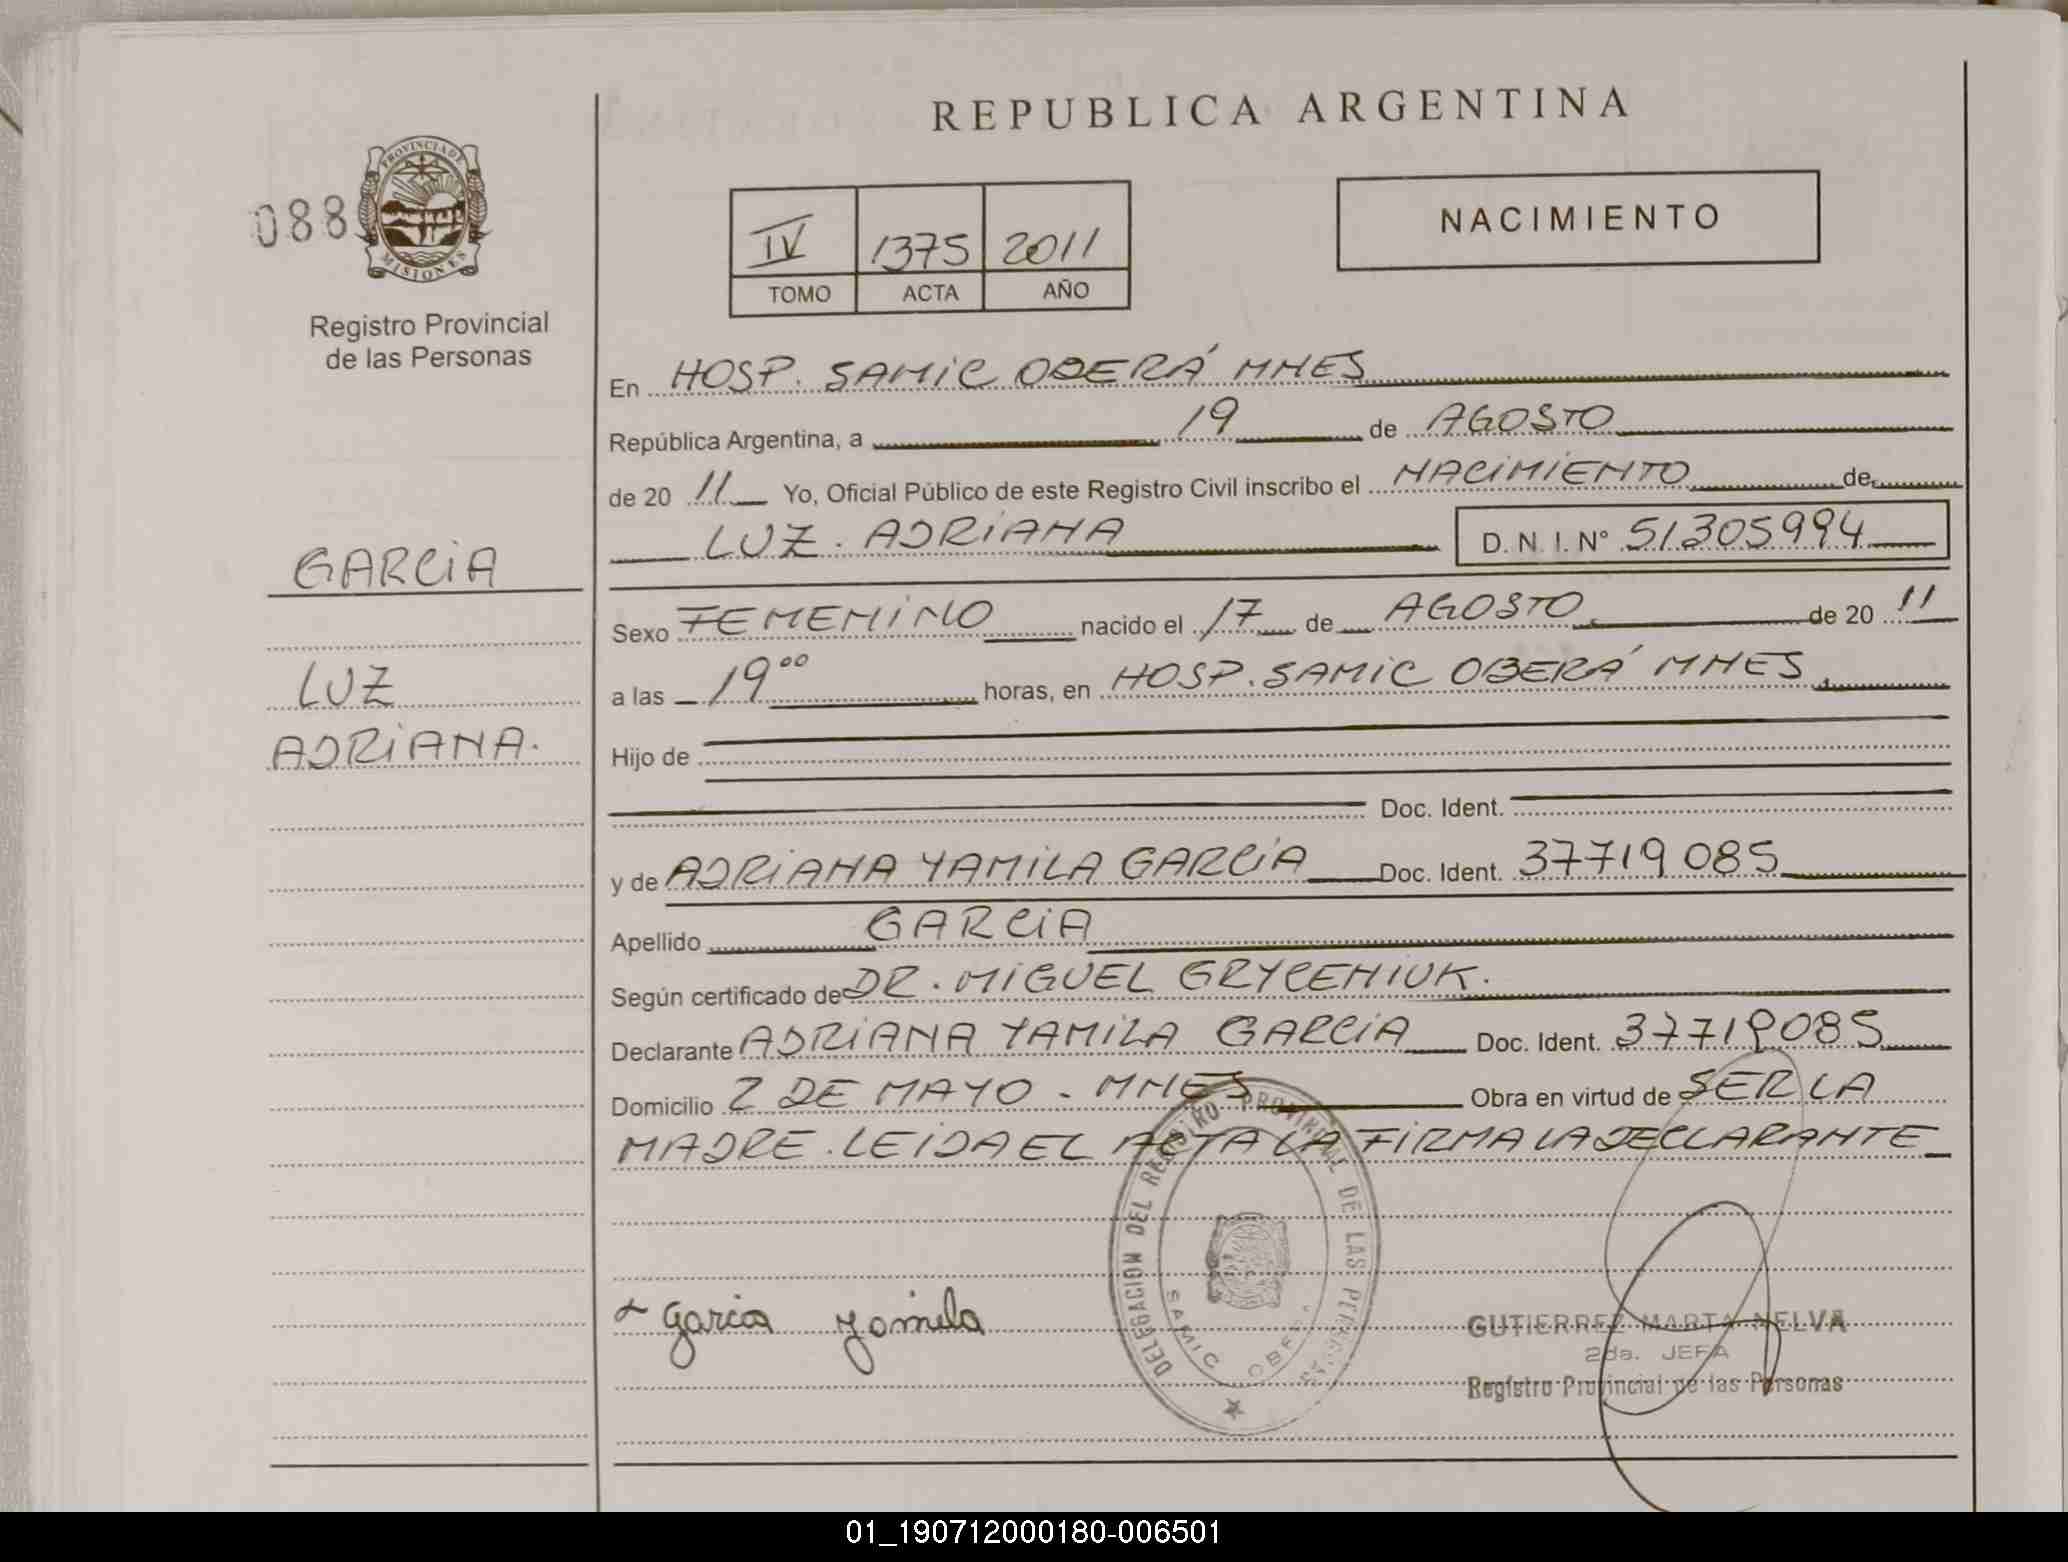 REPUBLICA ARGENTINA
088
PROVINCIA DE MISIONES
Registro Provincial
de las Personas
IV 1375 2011
TOMO ACTA AÑO
NACIMIENTO
En HOSP. SAMIC OBERÁ MNES
República Argentina, a 19 de AGOSTO
de 20 11 Yo, Oficial Público de este Registro Civil inscribo el NACIMIENTO de
LUZ. ADRIANA D. N. I. N° 51305994
GARCIA
LUZ
ADRIANA.
Sexo FEMENINO nacido el 17 de AGOSTO de 20 11
a las 19⁰⁰ horas, en HOSP. SAMIC OBERÁ MNES
Hijo de
Doc. Ident.
y de ADRIANA YAMILA GARCIA Doc. Ident. 37719085
Apellido GARCIA
Según certificado de DR. MIGUEL GRYCENIUK.
Declarante ADRIANA YAMILA GARCIA Doc. Ident. 37719085
Domicilio 2 DE MAYO - MNES Obra en virtud de SER LA
MADRE. LEIDA EL ACTA LA FIRMA LA DECLARANTE
DELEGACION DEL REGISTRO PROVINCIAL DE LAS PERSONAS
SAMIC OBERA
Garcia Yamila
GUTIERREZ MARTA NELVA
2da. JEFA
Registro Provincial de las Personas
01_190712000180-006501